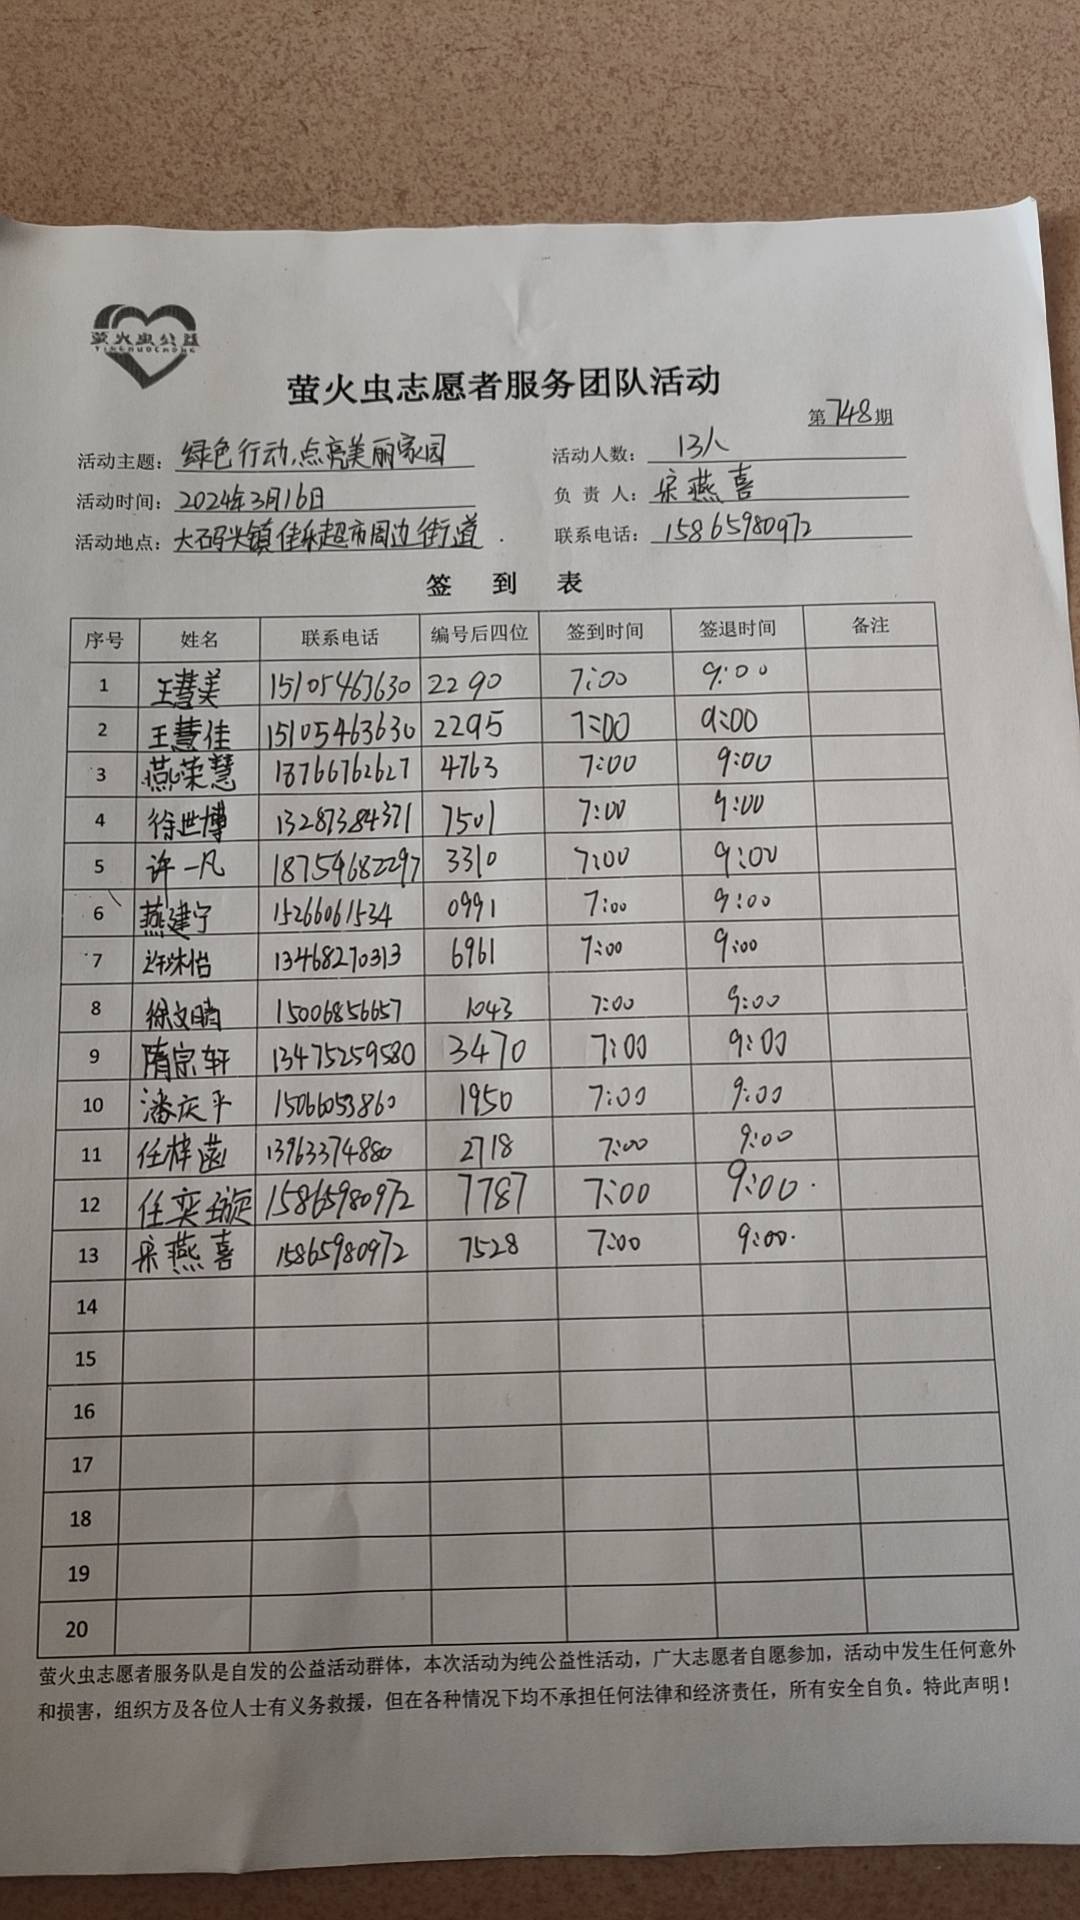 萤火虫公益
YINGHUOCHONG
萤火虫志愿者服务团队活动
第748期
活动主题：绿色行动,点亮美丽家园 活动人数：13人
活动时间：2024年3月16日 负 责 人：宋燕喜
活动地点：大码头镇佳乐超市周边街道. 联系电话：15865980972
签 到 表
序号 姓名 联系电话 编号后四位 签到时间 签退时间 备注
1 王慧美 15105463630 2290 7:00 9:00
2 王慧佳 15105463630 2295 7:00 9:00
3 燕荣慧 18766762627 4763 7:00 9:00
4 徐世博 13287384371 7501 7:00 9:00
5 许一凡 18754682297 3310 7:00 9:00
6 燕建宁 15266061534 0991 7:00 9:00
7 许沐怡 13468270313 6961 7:00 9:00
8 徐文晴 15006856657 1043 7:00 9:00
9 隋宗轩 13475259580 3470 7:00 9:00
10 潘庆平 15066053860 1950 7:00 9:00
11 任梓菡 13963374880 2718 7:00 9:00
12 任奕璇 15865980972 7787 7:00 9:00.
13 宋燕喜 15865980972 7528 7:00 9:00.
14
15
16
17
18
19
20
萤火虫志愿者服务队是自发的公益活动群体，本次活动为纯公益性活动，广大志愿者自愿参加，活动中发生任何意外
和损害，组织方及各位人士有义务救援，但在各种情况下均不承担任何法律和经济责任，所有安全自负。特此声明！